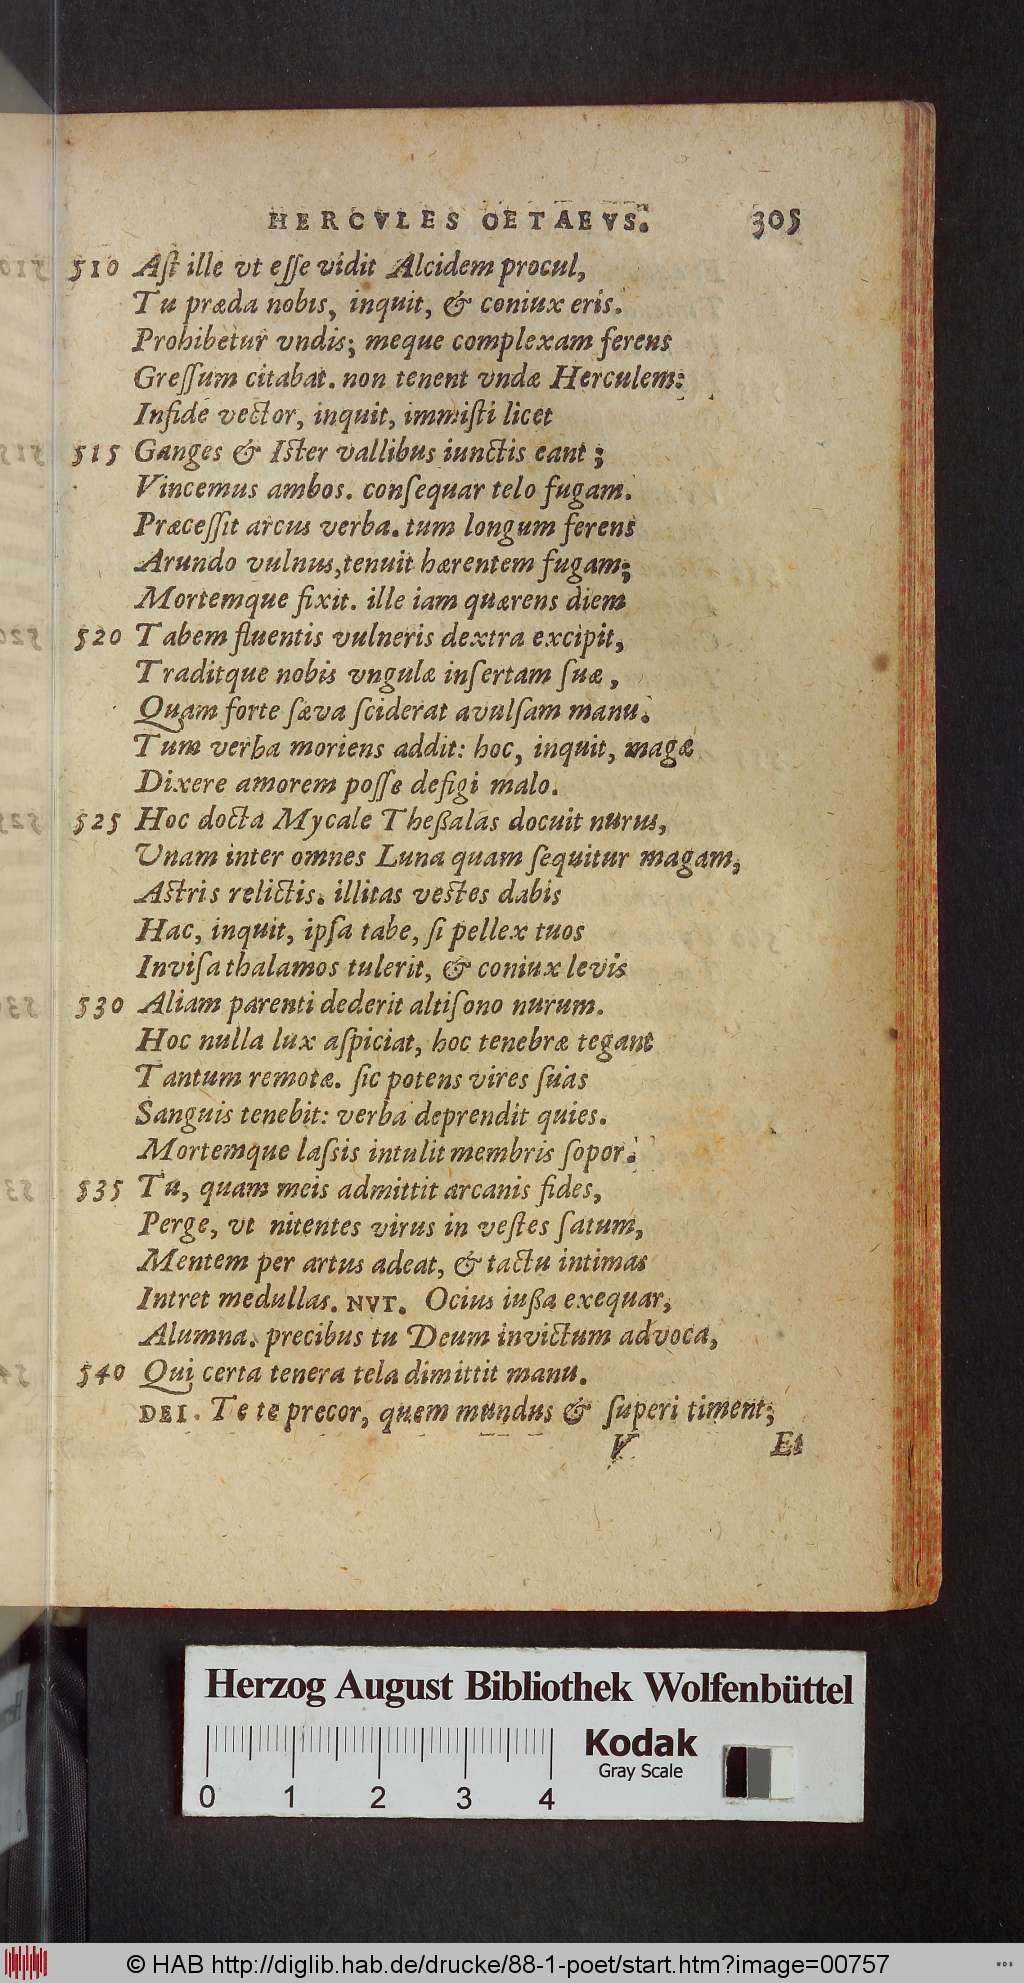 HERCVLES OETAEVS. 305
510 Aſt ille vt eſſe vidit Alcidem procul,
Tu præda nobis, inquit, & coniux eris.
Prohibetur vndis; meque complexam ferens
Greſſum citabat. non tenent vndæ Herculem:
Infide vector, inquit, immiſti licet
515 Ganges & Iſter vallibus iunctis eant;
Vincemus ambos. conſequar telo fugam.
Præceſſit arcus verba. tum longum ferens
Arundo vulnus, tenuit hærentem fugam;
Mortemque fixit. ille iam quærens diem
520 Tabem fluentis vulneris dextra excipit,
Traditque nobis vngulæ inſertam ſuæ,
Quam forte ſæva ſciderat avulſam manu.
Tum verba moriens addit: hoc, inquit, magæ
Dixere amorem poſſe defigi malo.
525 Hoc docta Mycale Theßalas docuit nurus,
Unam inter omnes Luna quam ſequitur magam,
Aſtris relictis. illitas veſtes dabis
Hac, inquit, ipſa tabe, ſi pellex tuos
Inviſa thalamos tulerit, & coniux levis
530 Aliam parenti dederit altiſono nurum.
Hoc nulla lux aſpiciat, hoc tenebræ tegant
Tantum remotæ. ſic potens vires ſuas
Sanguis tenebit: verba deprendit quies.
Mortemque laſsis intulit membris ſopor.
535 Tu, quam meis admittit arcanis fides,
Perge, vt nitentes virus in veſtes ſatum,
Mentem per artus adeat, & tactu intimas
Intret medullas. NVT. Ocius iußa exequar,
Alumna. precibus tu Deum invictum advoca,
540 Qui certa tenera tela dimittit manu.
DEI. Te te precor, quem mundus & ſuperi timent;
V Et
Herzog August Bibliothek Wolfenbüttel
Kodak
Gray Scale
0 1 2 3 4
© HAB http://diglib.hab.de/drucke/88-1-poet/start.htm?image=00757